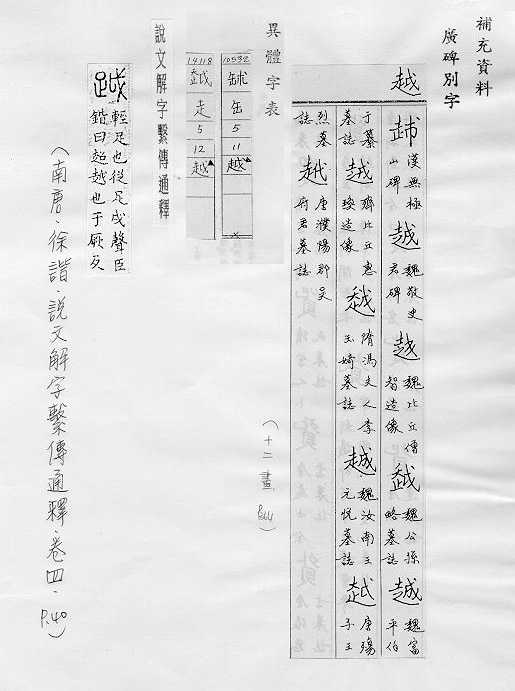 補充資料
廣碑別字
越
漢無極山碑 越 魏敬史君碑 越 魏比丘僧智造像 魏公孫略墓誌 越 魏富平伯
于纂墓誌 越 齊比丘惠璨造像 隋馮夫人李玉婍墓誌 越 魏汝南王元悅墓誌 唐殤子王
烈墓誌 唐濮陽郡吳府君墓誌
(十二畫 P.244)
異體字表
10532 缶 5 11 越
14118 走 5 12 越
說文解字繫傳通釋
輕足也從足戉聲臣
鍇曰超越也于厥反
(南唐·徐鍇·說文解字繫傳通釋·卷四·P.40)